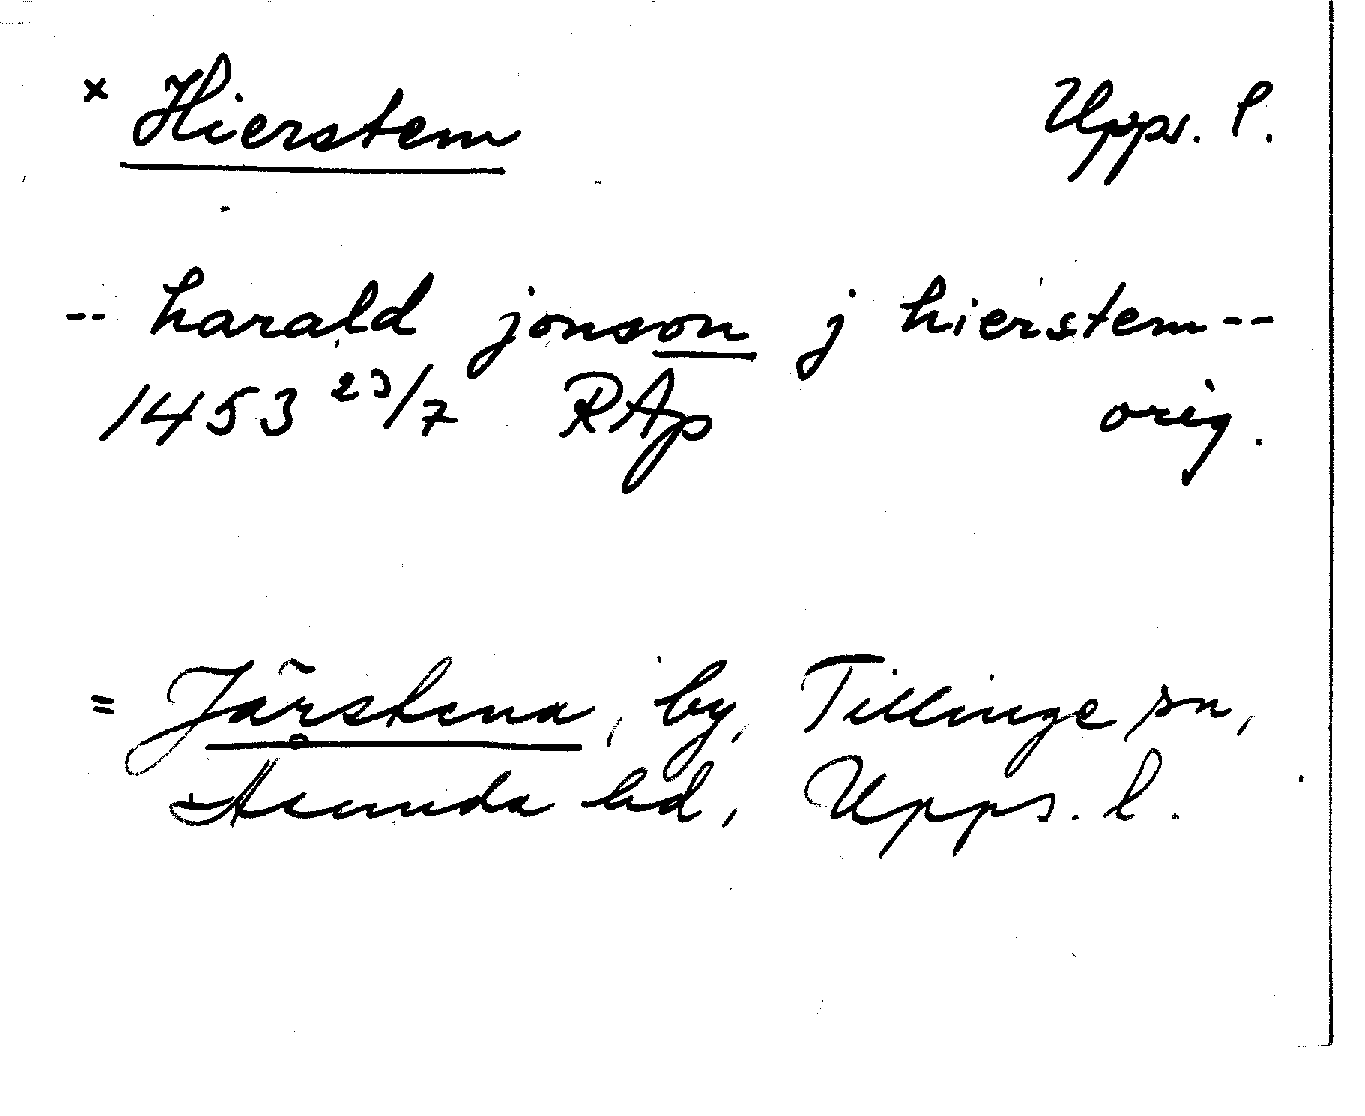 × Hierstem Upps. l.
-- harald jonson j hierstem --
1453 23/7 RAp orig.
= Järstena, by, Tillinge sn,
Asunda hd, Upps. l.